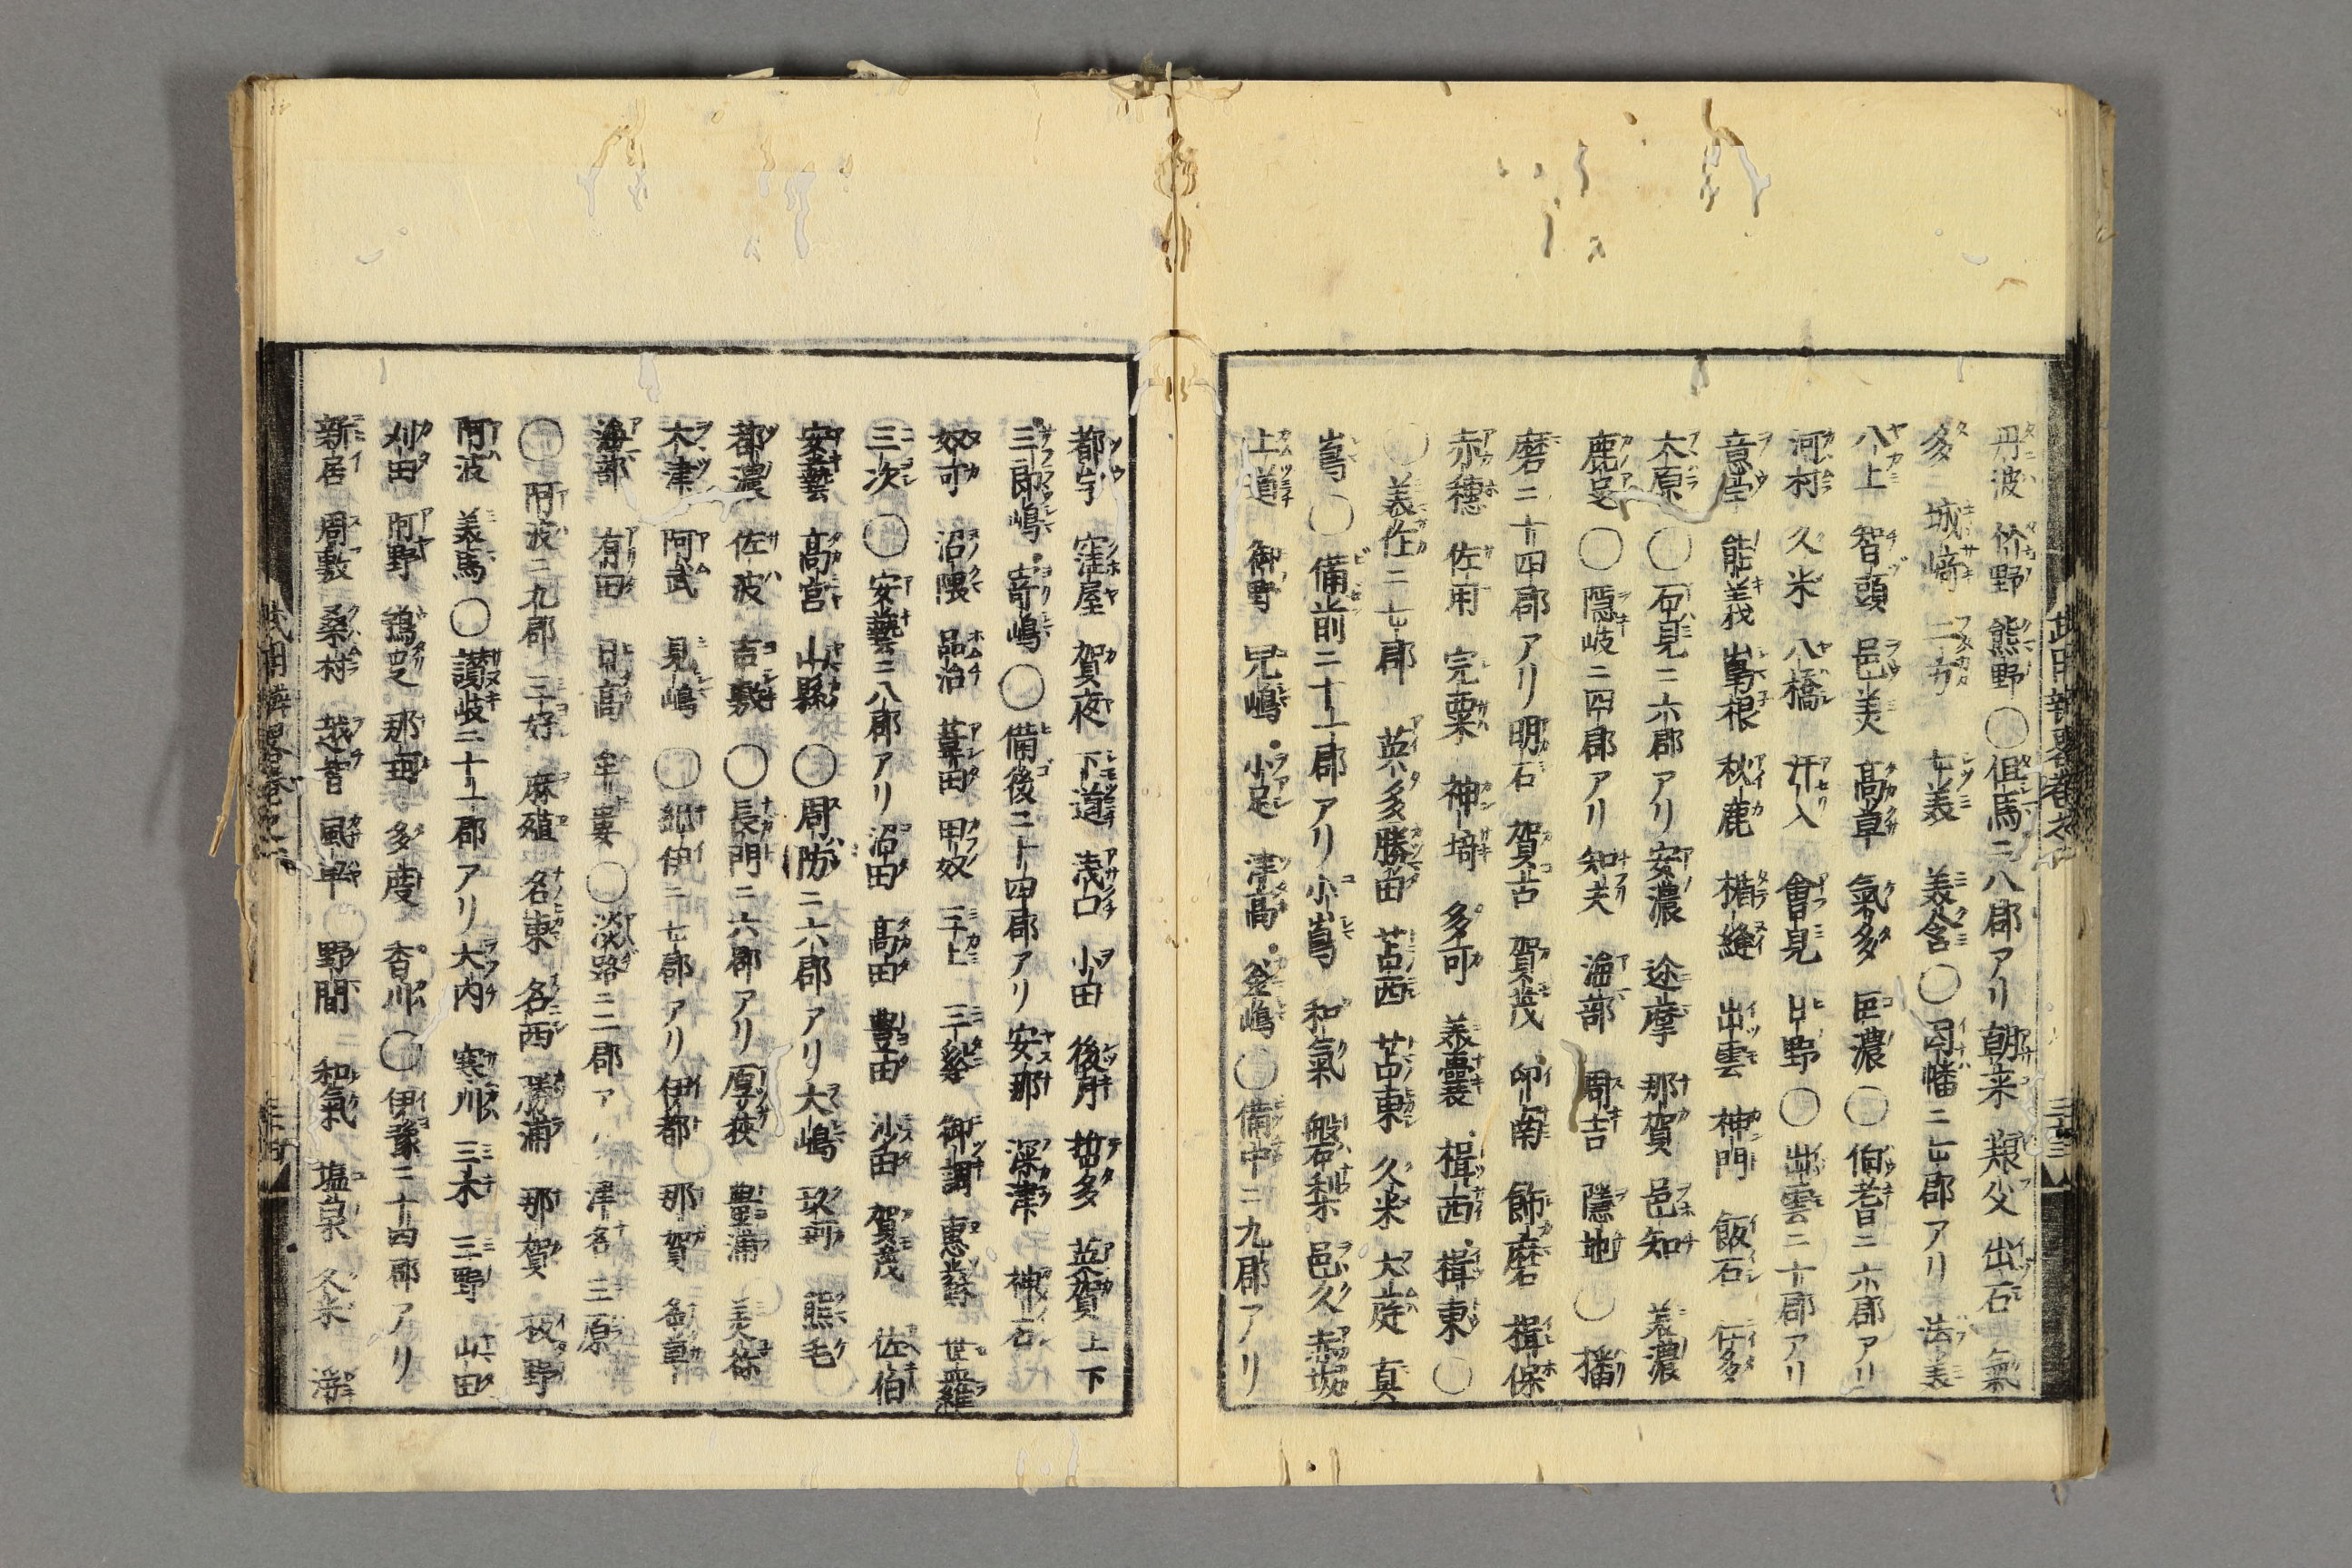 丹波 竹野 熊野 〇但馬ニ八郡アリ朝来 養父 出石 氣
多 城﨑 二方 七美 美含〇因幡ニ七郡アリ 法美
八上 智頭 邑美 髙草 氣多 巨濃〇伯耆ニ六郡アリ
河村 久米 八橋 汗入 會見 日野〇出雲ニ十郡アリ
意宇 能義 嶌根 秋鹿 楯縫 出雲 神門 飯石 仁多
大原〇石見ニ六郡アリ安濃 迩摩 那賀 邑知 美濃
鹿足〇隱岐ニ四郡アリ知夫 海部 周吉 隱地〇播
磨ニ十四郡アリ明石 賀古 賀茂 印南 飾磨 揖保
赤穂 佐用 完粟 神埼 多可 美嚢 揖西 揖東〇
〇美作ニ七郡 英多勝田 苫西 苫東 久米 大庭 真
嶌〇備前ニ十一郡アリ小嶌 和氣 磐梨 邑久 赤坂
上道 御野 兒嶋 小足 津髙 釜嶋〇備中ニ九郡アリ
都宇 窪屋 賀夜 下道 浅口 小田 後月 哲多 英賀上下
三郎嶋 寄嶋〇備後ニ十四郡アリ安那 深津 神石
奴可 沼隈 品治 葦田 甲奴 三上 三谿 御調 惠蘓 世羅
三次〇安藝ニ八郡アリ沼田 髙田 豊田 沙田 賀茂 佐伯
安藝 髙宮 山縣〇周防ニ六郡アリ大嶋 玖珂 熊毛
都濃 佐波 吉敷〇長門ニ六郡アリ厚狹 豊浦 美祢
大津 阿武 見嶋〇紀伊ニ七郡アリ伊都 那賀 名草
海部 有田 日髙 牟婁〇淡路ニ二郡アリ 津名 三原
〇阿波ニ九郡 三好 麻殖 名東 名西 勝浦 那賀 板野
阿波 美馬〇讃岐ニ十一郡アリ大内 寒川 三木 三野 山田
刈田 阿野 鵜足 那珂 多度 香川〇伊豫ニ十四郡アリ
新居 周敷 桑村 越智 風早 野間 和氣 塩泉 久米 浮